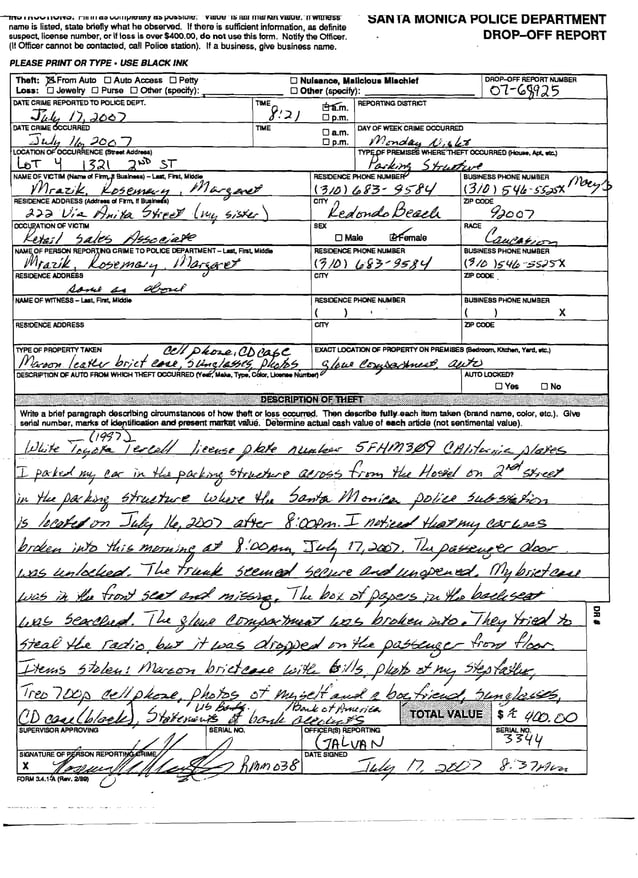 INSTRUCTIONS: Fill in as completely as possible. Value is fair market value. If witness
name is listed, state briefly what he observed. If there is sufficient information, as definite
suspect, license number, or if loss is over $400.00, do not use this form. Notify the Officer.
(If Officer cannot be contacted, call Police station). If a business, give business name.
SANTA MONICA POLICE DEPARTMENT
DROP-OFF REPORT
PLEASE PRINT OR TYPE - USE BLACK INK
Theft: ☒ From Auto ☐ Auto Access ☐ Petty ☐ Nuisance, Malicious Mischief
Loss: ☐ Jewelry ☐ Purse ☐ Other (specify): ☐ Other (specify):
DROP-OFF REPORT NUMBER
07-68925
DATE CRIME REPORTED TO POLICE DEPT. TIME ☒ a.m. ☐ p.m. REPORTING DISTRICT
July 17, 2007 8:21
DATE CRIME OCCURRED TIME ☐ a.m. ☐ p.m. DAY OF WEEK CRIME OCCURRED
July 16, 2007 Monday Night
LOCATION OF OCCURRENCE (Street Address) TYPE OF PREMISES WHERE THEFT OCCURRED (House, Apt, etc.)
LOT 4 1321 2ND ST Parking Structure
NAME OF VICTIM (Name of Firm, if Business) – Last, First, Middle RESIDENCE PHONE NUMBER BUSINESS PHONE NUMBER
Mrazik, Rosemary, Margaret (310) 683-9584 (310) 546-5525X Macy's
RESIDENCE ADDRESS (Address of Firm, if Business) CITY ZIP CODE
222 Via Anita Street (my sister) Redondo Beach 92007
OCCUPATION OF VICTIM SEX RACE
Retail Sales Associate ☐ Male ☒ Female Caucasion
NAME OF PERSON REPORTING CRIME TO POLICE DEPARTMENT – Last, First, Middle RESIDENCE PHONE NUMBER BUSINESS PHONE NUMBER
Mrazik, Rosemary, Margaret (310) 683-9584 (310) 546-5525X
RESIDENCE ADDRESS CITY ZIP CODE
same as above
NAME OF WITNESS – Last, First, Middle RESIDENCE PHONE NUMBER BUSINESS PHONE NUMBER
( ) ( ) X
RESIDENCE ADDRESS CITY ZIP CODE
TYPE OF PROPERTY TAKEN cell phone, CD case EXACT LOCATION OF PROPERTY ON PREMISES (Bedroom, Kitchen, Yard, etc.)
Maroon leather briefcase, sunglasses, photos glove compartment, auto
DESCRIPTION OF AUTO FROM WHICH THEFT OCCURRED (Year, Make, Type, Color, License Number) AUTO LOCKED?
☐ Yes ☐ No
DESCRIPTION OF THEFT
Write a brief paragraph describing circumstances of how theft or loss occurred. Then describe fully each item taken (brand name, color, etc.). Give
serial number, marks of identification and present market value. Determine actual cash value of each article (not sentimental value).
(1987)
White Toyota Tercell license plate number 5FHM309 CAlifornia plates
I parked my car in the parking structure across from the Hostel on 2nd street
in the parking structure where the Santa Monica police substation
is located on July 16, 2007 after 8:00pm. I noticed that my car was
broken into this morning at 8:00am, July 17, 2007. The passenger door
was unlocked. The trunk seemed secure and unopened. My briefcase
was in the front seat and missing. The box of papers in the backseat
was searched. The glove compartment was broken into. They tried to
steal the radio, but it was dropped on the passenger front floor.
Items stolen: Maroon briefcase with bills, photo of my stepfather,
Treo 700p cell phone, photos of myself and a boyfriend, sunglasses,
US Bank, /Bank of America
CD case (black), Statements of bank accounts
TOTAL VALUE $ 400.00
DR #
SUPERVISOR APPROVING SERIAL NO. OFFICER(S) REPORTING SERIAL NO.
GALVAN 3344
SIGNATURE OF PERSON REPORTING CRIME DATE SIGNED
X RMM038 July 17, 2007 8:37Am
FORM 3.4.1A (Rev. 2/89)